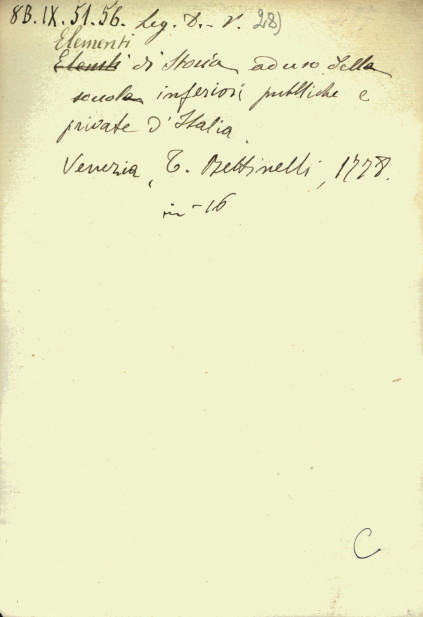 8B.IX.51.56. Leg. D.-V. 28)
Elementi
Elemti di Storia ad uso della
scuola inferiori pubbliche e
private d'Italia.
Venezia, T. Bettinelli, 1778.
in-16
C